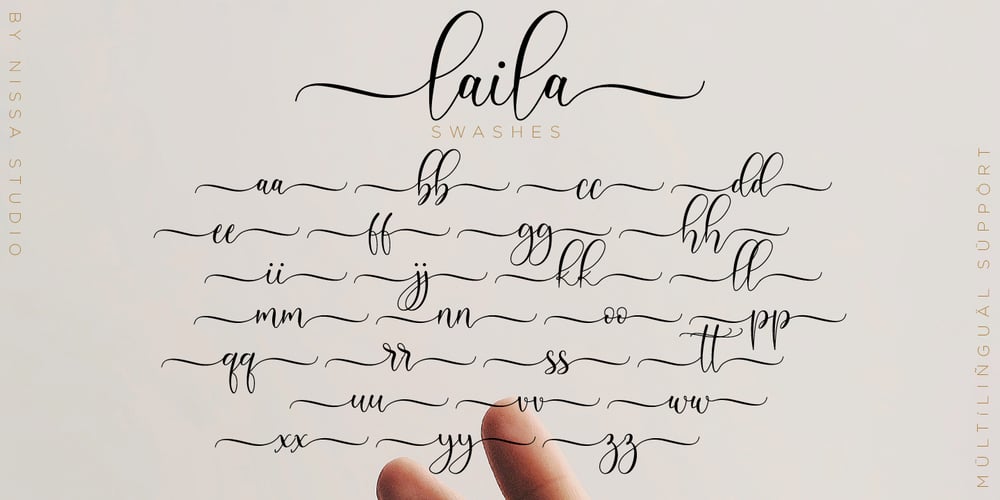 BY NISSA STUDIO
laila
SWASHES
aa bb cc dd
ee ff gg hh
ii jj kk ll
mm nn oo pp
qq rr ss tt
uu vv ww
xx yy zz
MÜLTíLIÑGUÄL SÜPPÖRT